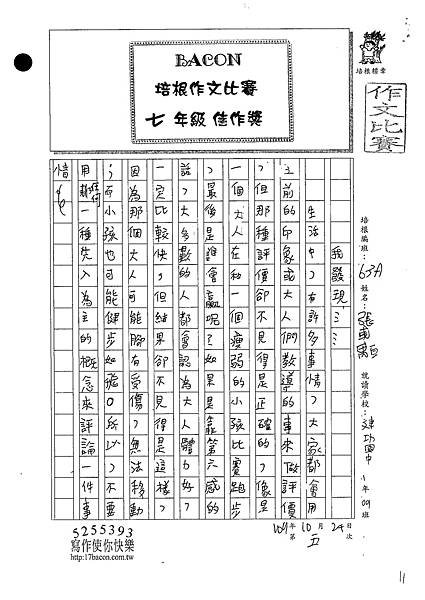 BACON
培根作文比賽
七年級佳作獎
培根檔案
作文比賽
培根編班：
姓名：張
就讀學校：
我發現……
生活中，有許多事情，大家都會用
主前的印象或大人們教導的事來做評價
，但那種評價卻不見得是正確的，像是
一個大人在和一個瘦弱的小孩比賽跑步
，最後是誰會贏呢？如果是靠第六感的
話，大多數的人都會認為大人體力好，
一定比較快，但結果卻不見得是這樣，
因為那個大人可能腳有受傷，無法移動
；而小孩也可能健步如飛。所以，不要
用任何一種先入為主的概念來評論一件事
情。
109年10月24日
第五次
5255393
寫作使你快樂
http://17bacon.com.tw
11